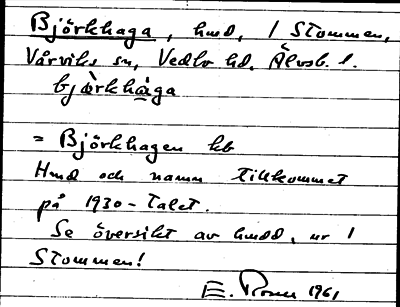 Björkhaga, hmd, 1 Stommen,
Vårviks sn, Vedbo hd. Älvsb. l.
bjærkhàga
= Björkhagen kb
Hmd och namn tillkommet
på 1930-talet.
Se översikt av hmdd. ur 1
Stommen!
E. 1961